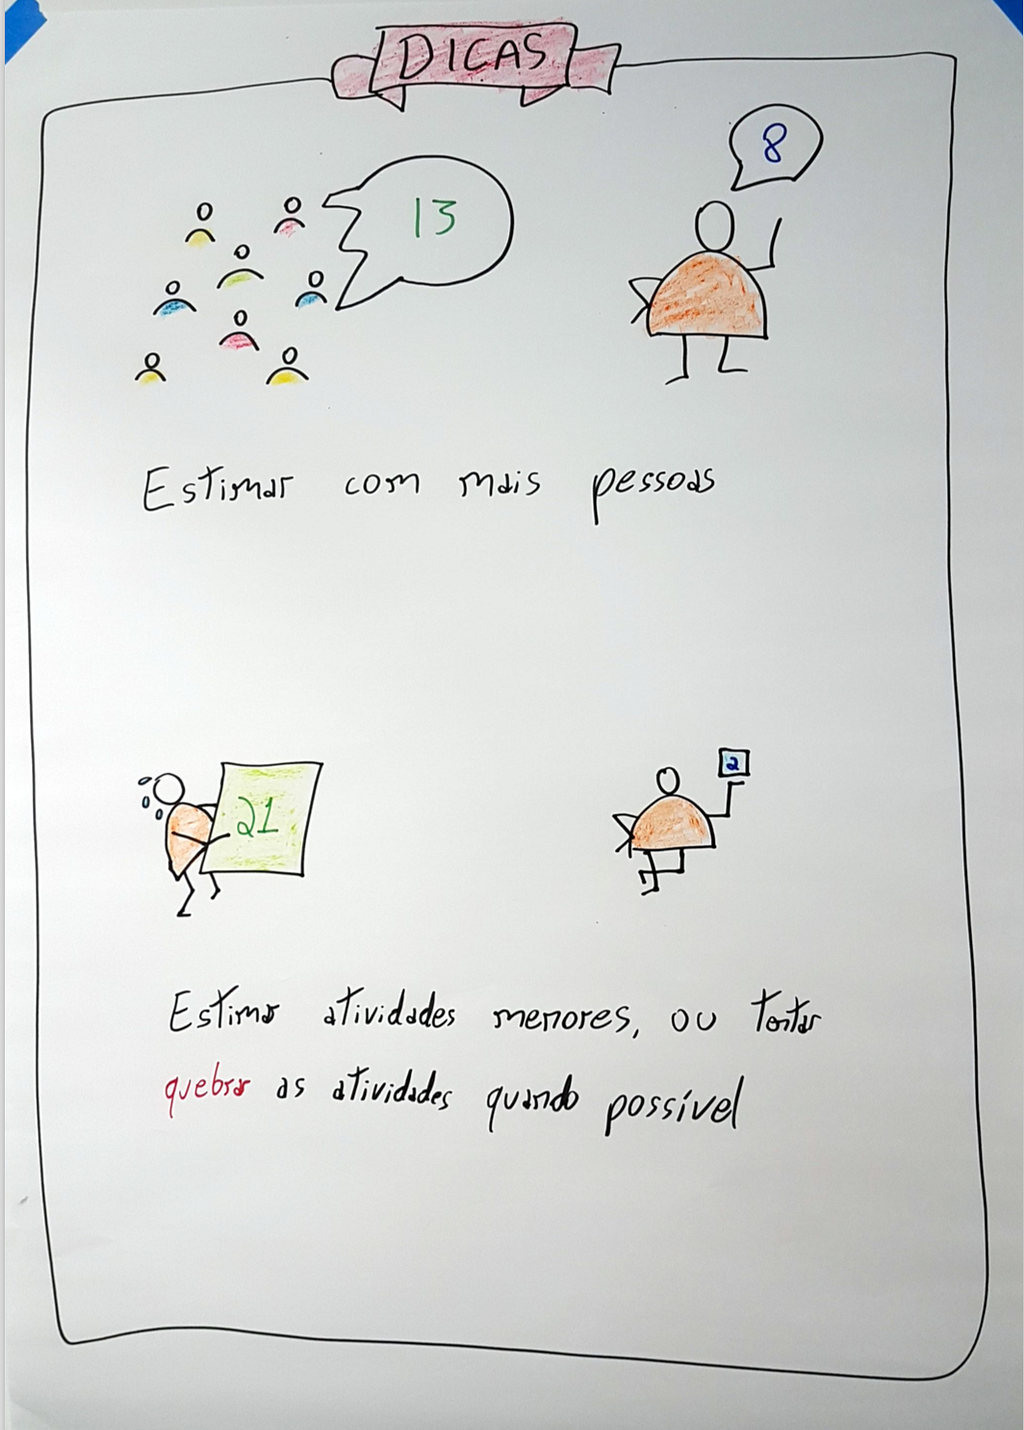 DICAS
13
8
Estimar com mais pessoas
21
2
Estimar atividades menores, ou tentar
quebrar as atividades quando possível